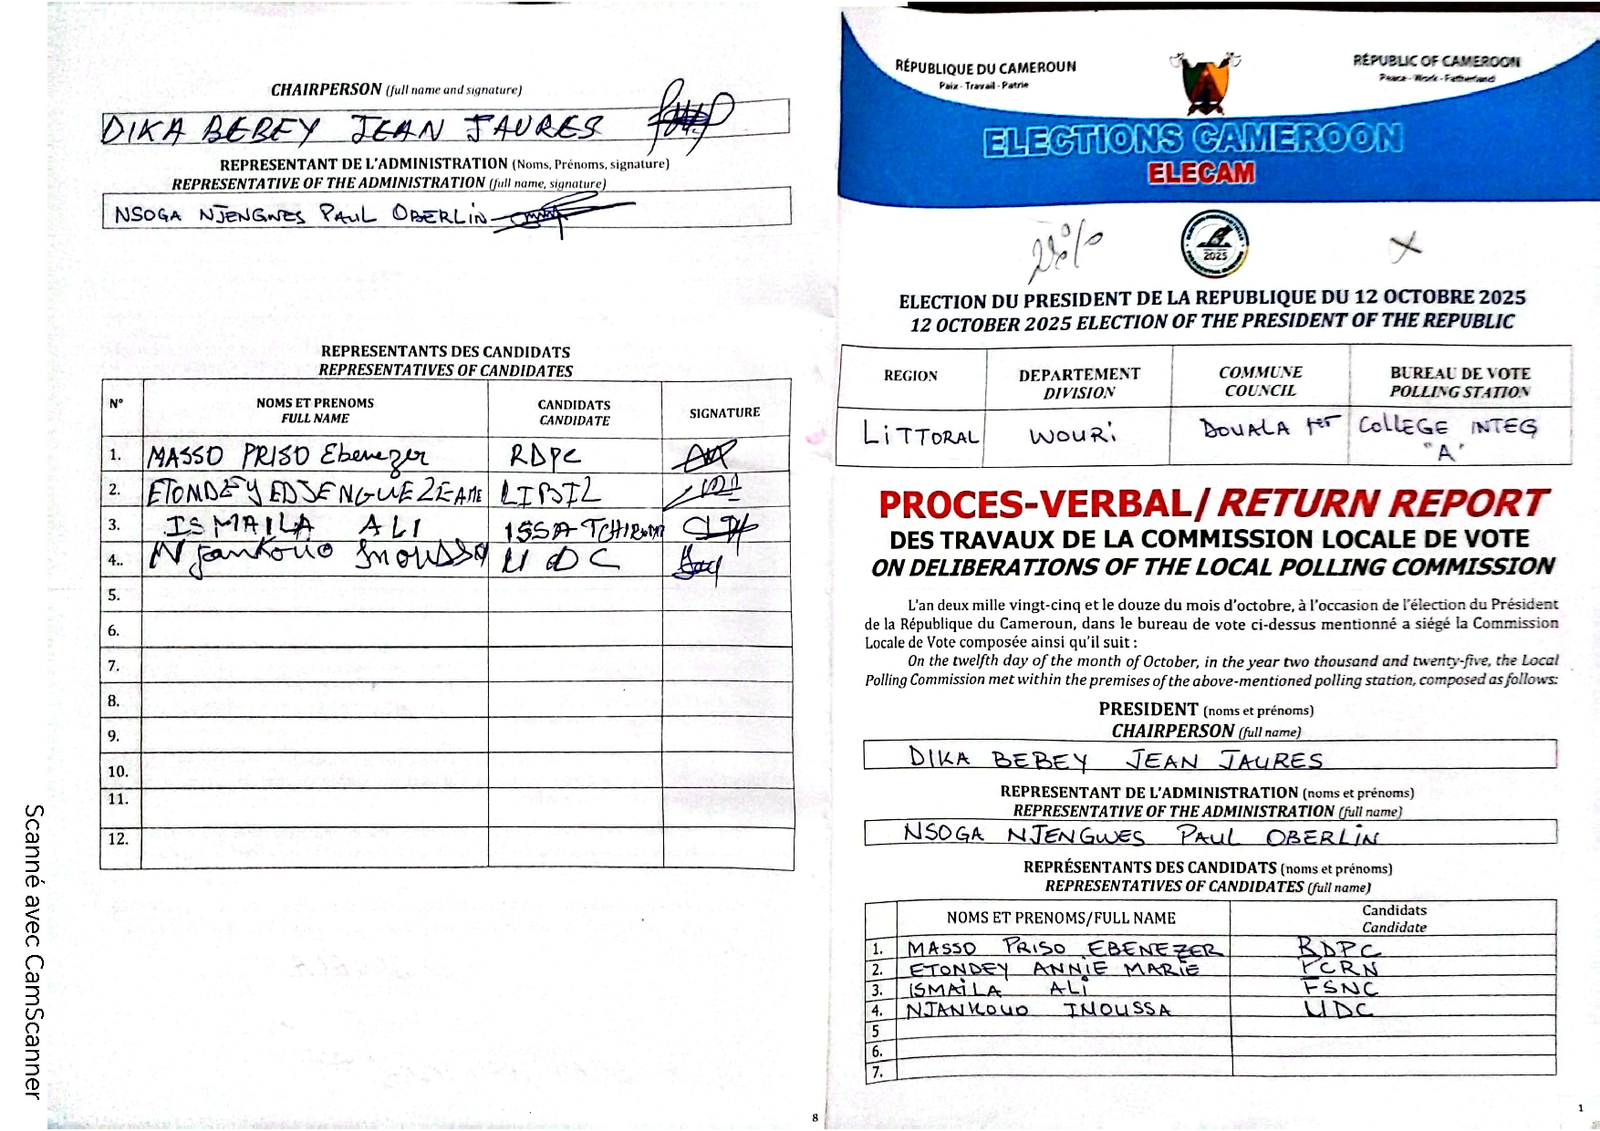 CHAIRPERSON (full name and signature)
DIKA BEBEY JEAN JAURES
REPRESENTANT DE L'ADMINISTRATION (Noms, Prénoms, signature)
REPRESENTATIVE OF THE ADMINISTRATION (full name, signature)
NSOGA NJENGWES PAUL OBERLIN
REPRESENTANTS DES CANDIDATS
REPRESENTATIVES OF CANDIDATES
N° NOMS ET PRENOMS FULL NAME CANDIDATS CANDIDATE SIGNATURE
1. MASSO PRISO Ebenezer RDPC
2. ETONDEY
3. ISMAILA ALI ISSA TCHIROMA
4.. Njankouo Inoussa UDC
5.
6.
7.
8.
9.
10.
11.
12.
8
Scanné avec CamScanner
RÉPUBLIQUE DU CAMEROUN
Paix - Travail - Patrie
RÉPUBLIC OF CAMEROON
Peace - Work - Fatherland
ELECTIONS CAMEROON
ELECAM
2025
ELECTION DU PRESIDENT DE LA REPUBLIQUE DU 12 OCTOBRE 2025
12 OCTOBER 2025 ELECTION OF THE PRESIDENT OF THE REPUBLIC
REGION DEPARTEMENT DIVISION COMMUNE COUNCIL BUREAU DE VOTE POLLING STATION
LITTORAL WOURI DOUALA 1er COLLEGE INTEG "A"
PROCES-VERBAL/ RETURN REPORT
DES TRAVAUX DE LA COMMISSION LOCALE DE VOTE
ON DELIBERATIONS OF THE LOCAL POLLING COMMISSION
L'an deux mille vingt-cinq et le douze du mois d'octobre, à l'occasion de l'élection du Président
de la République du Cameroun, dans le bureau de vote ci-dessus mentionné a siégé la Commission
Locale de Vote composée ainsi qu'il suit :
On the twelfth day of the month of October, in the year two thousand and twenty-five, the Local
Polling Commission met within the premises of the above-mentioned polling station, composed as follows:
PRESIDENT (noms et prénoms)
CHAIRPERSON (full name)
DIKA BEBEY JEAN JAURES
REPRESENTANT DE L'ADMINISTRATION (noms et prénoms)
REPRESENTATIVE OF THE ADMINISTRATION (full name)
NSOGA NJENGWES PAUL OBERLIN
REPRÉSENTANTS DES CANDIDATS (noms et prénoms)
REPRESENTATIVES OF CANDIDATES (full name)
NOMS ET PRENOMS/FULL NAME Candidats Candidate
1. MASSO PRISO EBENEZER RDPC
2. ETONDEY ANNIE MARIE PCRN
3. ISMAILA ALI FSNC
4. NJANKOUO INOUSSA UDC
5
6.
7.
1